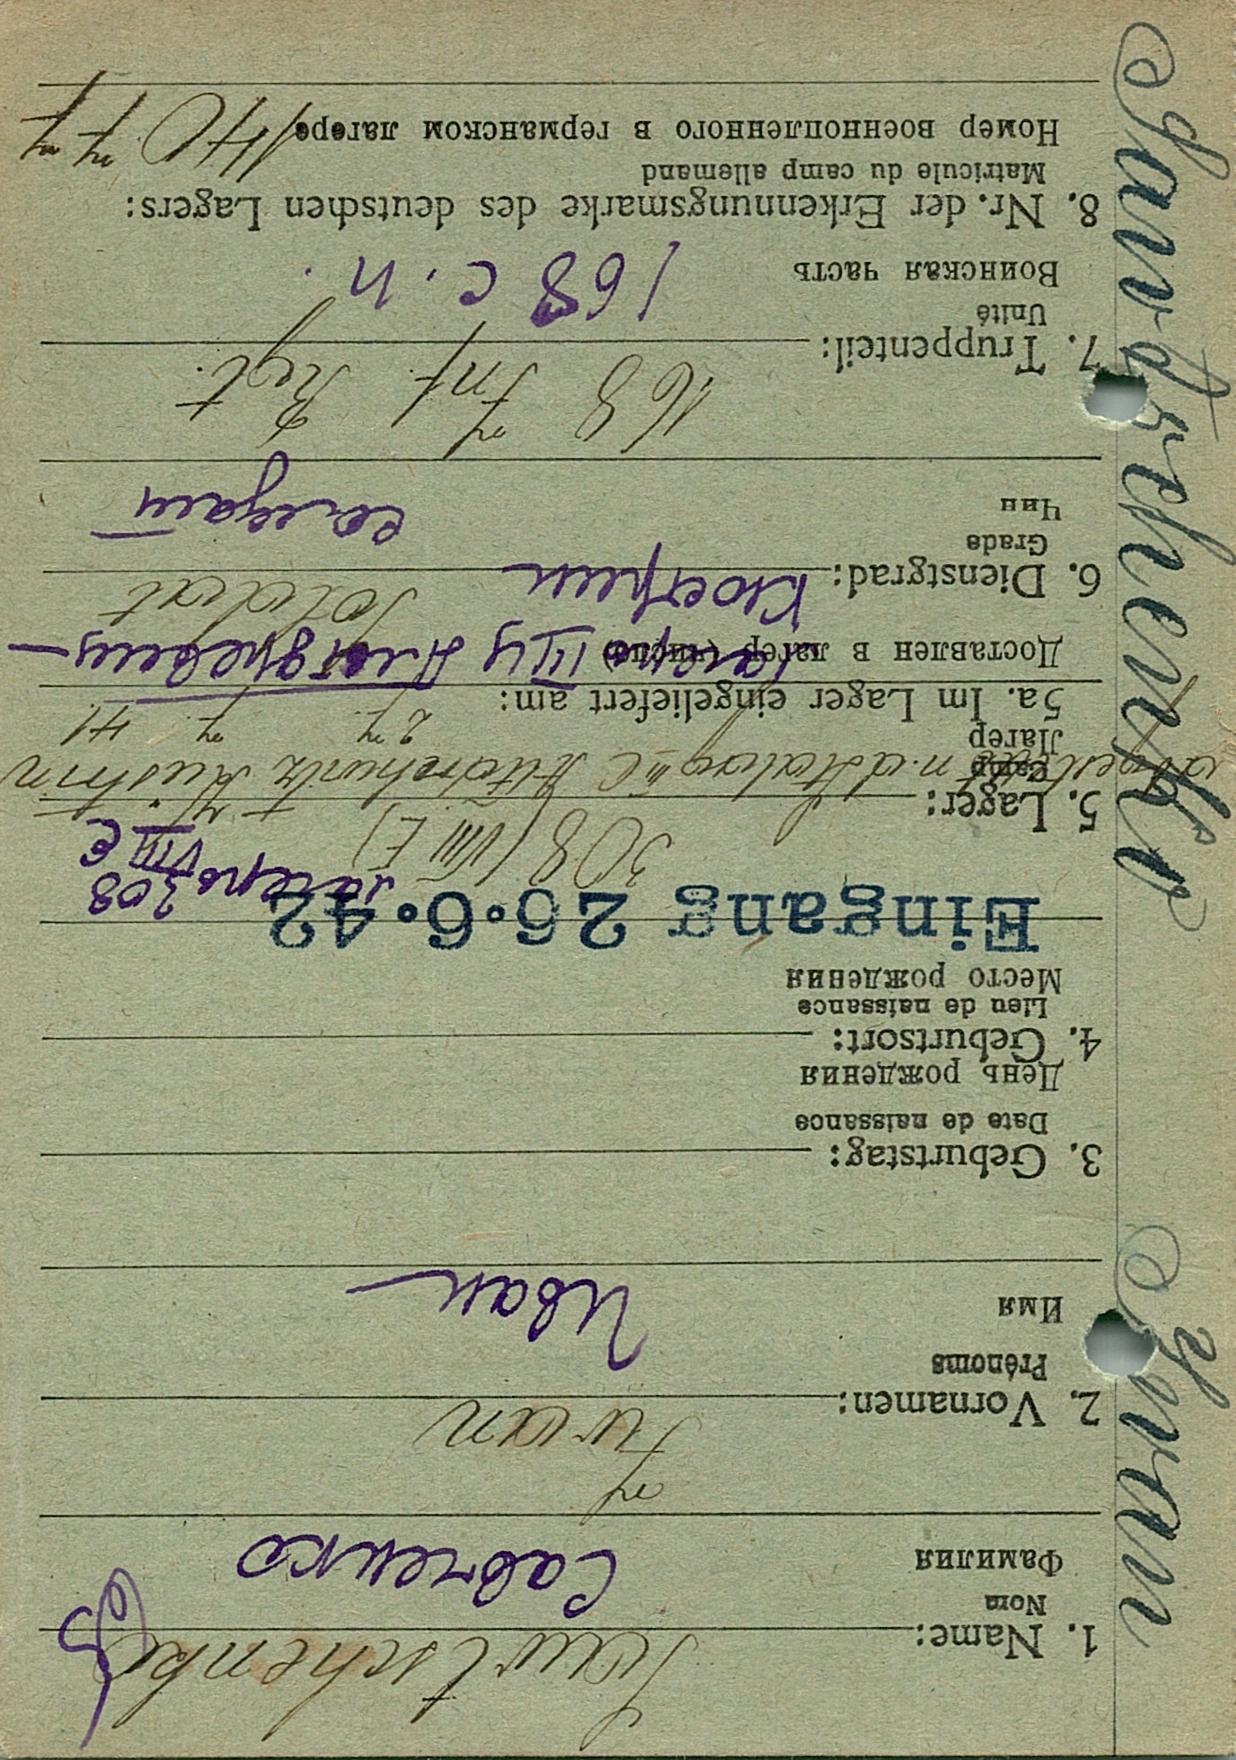 Sawtschenko Iwan
1. Name: Sawtschenko
Nom
Фамилия Савченко
2. Vornamen: Iwan
Prénoms
Имя Иван
3. Geburtstag:
Date de naissance
День рождения
4. Geburtsort:
Lieu de naissance
Место рождения
Eingang 25.6.42
лагерь 308
VIII E
5. Lager: 308 (VIII E)
Camp
Лагерь
n. d. Stalag III C Altdrewitz Küstrin
5a. Im Lager eingeliefert am: 27. 7. 41
Доставлен в лагерь (число)
лагерь III Ц Алтдревиц
Кюстрин
6. Dienstgrad: Soldat
Grade
Чин солдат
7. Truppenteil: 168 Inf Regt.
Unité
Воинская часть 168 с. п.
8. Nr. der Erkennungsmarke des deutschen Lagers:
Matricule du camp allemand
Номер военнопленного в германском лагере